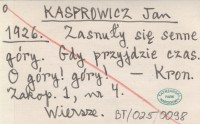 KASPROWICZ Jan
1926. Zasnuły się senne
góry. Gdy przyjdzie czas.
O góry! góry! — Kron.
Zakop. 1, nr 4.
Wiersze.
BT/025/9038